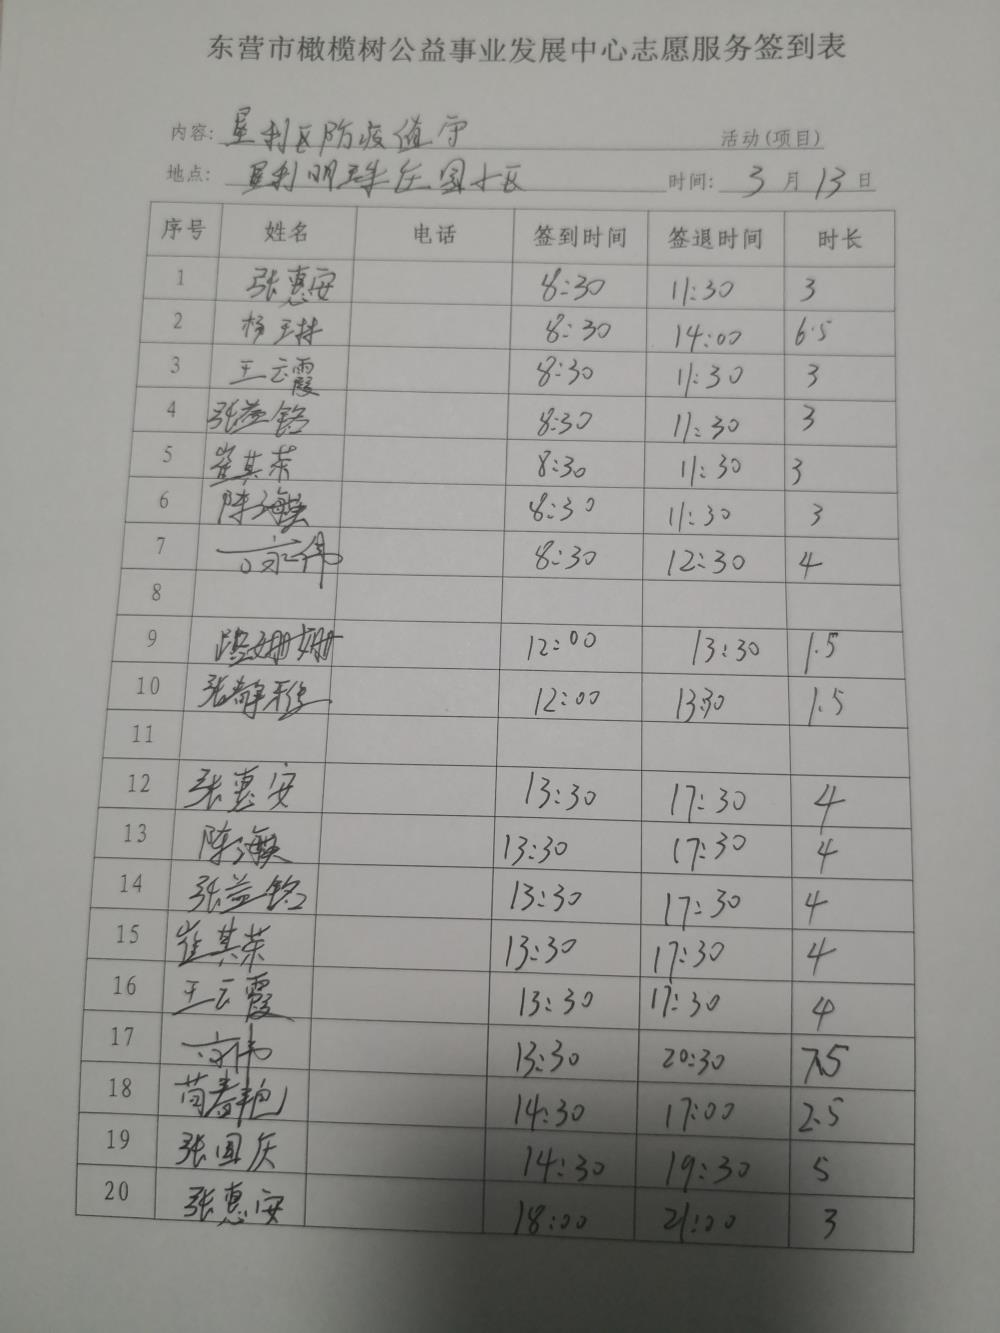 东营市橄榄树公益事业发展中心志愿服务签到表
内容: 垦利区防疫值守 活动(项目)
地点: 垦利明珠庄园小区 时间: 3月13日
序号 姓名 电话 签到时间 签退时间 时长
1 张惠安 8:30 11:30 3
2 杨玉林 8:30 14:00 6.5
3 王云霞 8:30 11:30 3
4 张益铭 8:30 11:30 3
5 崔其荣 8:30 11:30 3
6 陈海 8:30 11:30 3
7 8:30 12:30 4
8
9 姗姗 12:00 13:30 1.5
10 张静雅 12:00 13:30 1.5
11
12 张惠安 13:30 17:30 4
13 陈海 13:30 17:30 4
14 张益铭 13:30 17:30 4
15 崔其荣 13:30 17:30 4
16 王云霞 13:30 17:30 4
17 13:30 20:30 7.5
18 苟春艳 14:30 17:00 2.5
19 张国庆 14:30 19:30 5
20 张惠安 18:00 21:00 3